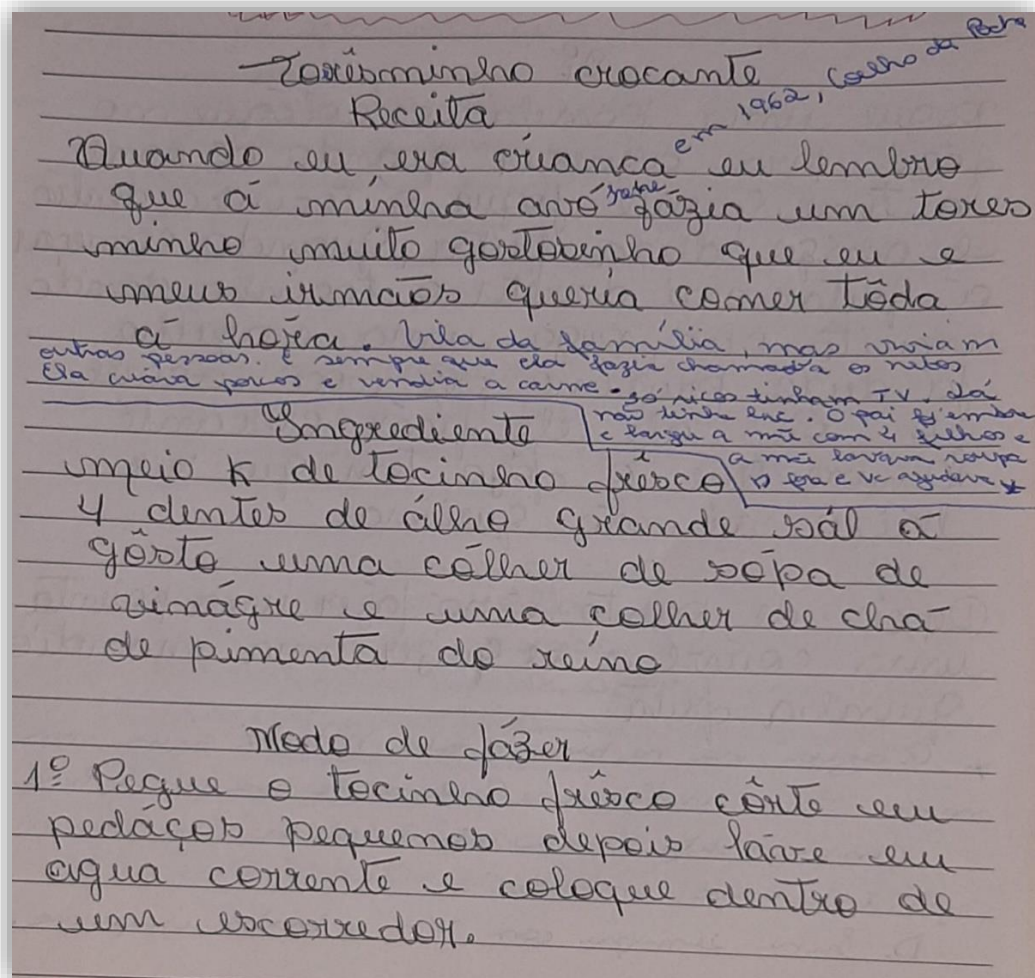 Torêsminho crocante
Receita
em 1962, Coelho da Rocha
Quando eu era criança eu lembro
que á minha avó fázia um tores
minho muito gostosinho que eu e
meus irmãos queria comer tôda
á hora. Vila da família, mas viviam
outras pessoas. E sempre que ela fazia chamava os netos
Ela criava porcos e vendia a carne. só ricos tinham TV. Lá
não tinha luz. O pai foi embora
e largou a mãe com 4 filhos e
a mãe lavava roupa
p fora e vc ajudava
Ingrediente
meio K de tocinho frêsco
4 dentes de álho grande sál á
gôsto uma cólher de sópa de
vinágre e uma colher de chá
de pimenta do reino
Modo de fázer
1º Pegue o tocinho frêsco côrte em
pedáços pequenos depois láve em
agua corrente e coloque dentro de
um escorredor.